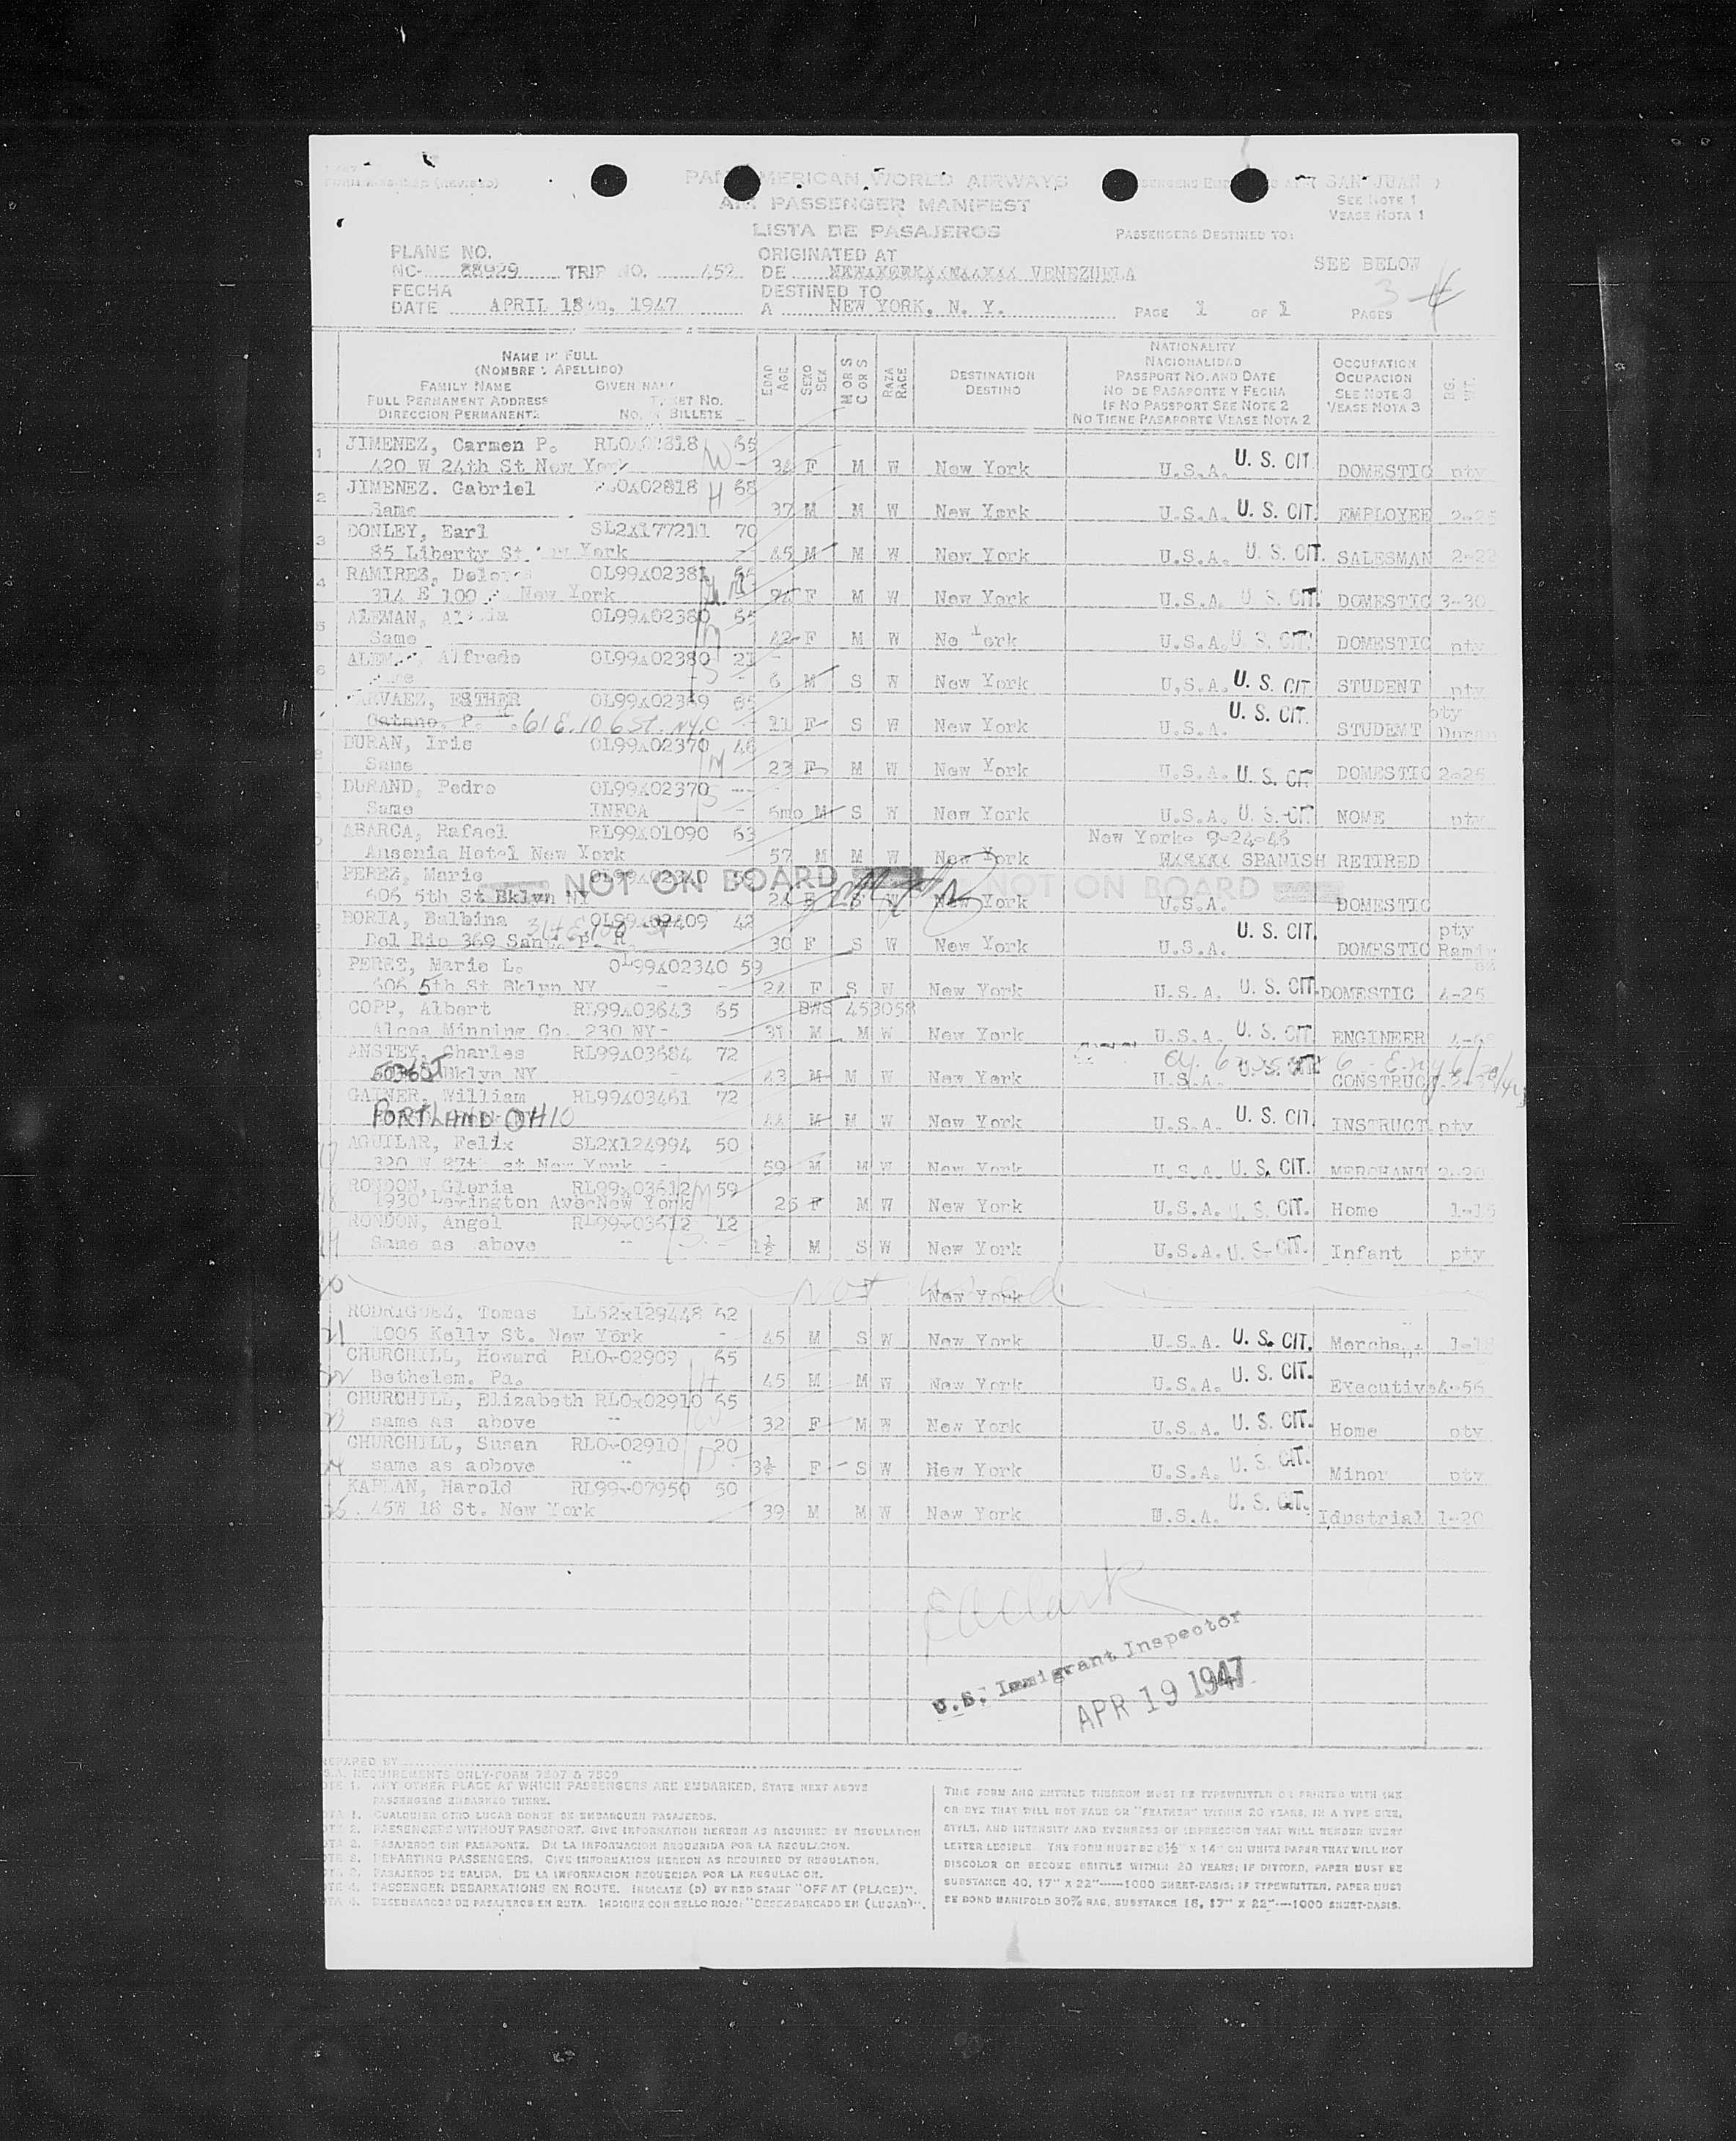 FORM (REVISED)
PAN AMERICAN WORLD AIRWAYS
AIR PASSENGER MANIFEST
LISTA DE PASAJEROS
SAN JUAN
SEE NOTE 1
VEASE NOTA 1
PASSENGERS DESTINED TO:
SEE BELOW
PLANE NO.
NC- 88929 TRIP NO. 452
ORIGINATED AT
DE VENEZUELA
FECHA
DATE APRIL 18th, 1947
DESTINED TO
A NEW YORK, N. Y.
PAGE 1 OF 1 PAGES
3 4
NAME IN FULL
(NOMBRE Y APELLIDO)
FAMILY NAME GIVEN NAME
FULL PERMANENT ADDRESS TICKET NO.
DIRECCION PERMANENTE NO. BILLETE
EDAD AGE
SEXO SEX
M OR S C OR S
RAZA RACE
DESTINATION
DESTINO
NATIONALITY
NACIONALIDAD
PASSPORT NO. AND DATE
NO DE PASAPORTE Y FECHA
IF NO PASSPORT SEE NOTE 2
NO TIENE PASAPORTE VEASE NOTA 2
OCCUPATION
OCUPACION
SEE NOTE 3
VEASE NOTA 3
1 JIMENEZ, Carmen P. 65
420 W 24th St New York W F M W New York U.S.A. U. S. CIT. DOMESTIC pty
2 JIMENEZ. Gabriel 02818 H 68
Same 37 M M W New York U.S.A. U. S. CIT. EMPLOYEE
3 DONLEY, Earl SL2X177211 70
85 Liberty St. New York 45 M M W New York U.S.A. U. S. CIT. SALESMAN 2-22
4 RAMIREZ, OL99X02381
314 E 100 New York F M W New York U.S.A. U. S. CIT. DOMESTIC 3-30
5 ALEMAN, OL99X02380 65
Same 42 F M W New York U.S.A. U. S. CIT. DOMESTIC pty
6 Alfredo OL99X02380 21
6 M S W New York U.S.A. U. S. CIT STUDENT pty
ESTHER OL99X02369 65
Catano, P. 61 E. 106 St. NYC 11 F S W New York U.S.A. U. S. CIT. STUDEMT pty Duran
DURAN, Iris OL99X02370 46
Same M 23 F M W New York U.S.A. U. S. CIT DOMESTIC 2-25
DURAND, Pedro OL99X02370 ---
Same INFOA S 6mo M S W New York U.S.A. U. S. CIT NOME pty
ABARCA, Rafael RL99X01090 63 New York- 9-24-46
Ansonia Hotel New York 57 M M W New York SPANISH RETIRED
PEREZ, Marie OL99X02340 NOT ON BOARD NOT ON BOARD
606 5th St Bklyn NY 24 F S W New York U.S.A. DOMESTIC
BORIA, Balbina OL99X02409 42
Del Rio 369 P. R. 30 F S W New York U.S.A. U. S. CIT. DOMESTIC pty
PEREZ, Marie L. OL99X02340 59
606 5th St Bklyn NY 24 F S W New York U.S.A. U. S. CIT. DOMESTIC 4-25
COPP, Albert RL99X03643 65 453058
Alcoa Minning Co. 230 NY- 31 M M W New York U.S.A. U. S. CIT ENGINEER
ANSTEY, Charles RL99X03684 72
Bklyn NY 43 M M W New York U.S.A. CONSTRUCT
GATNER, William RL99X03461 72
PORTLAND OHIO 44 M M W New York U.S.A. U. S. CIT. INSTRUCT pty
17 AGUILAR, Felix SL2X124994 50
320 W 87th st New York - 59 M M W New York U.S.A. U. S. CIT. MERCHANT
18 RONDON, Gloria RL99x03612 59
1930 Lexington Ave-New York M 26 F M W New York U.S.A. U. S. CIT. Home
19 RONDON, Angel RL99-03612 12
Same as above S 1½ M S W New York U.S.A. U. S. CIT. Infant pty
20 Not used New York
RODRIGUEZ, Tomas LL52x129448 52
21 1005 Kelly St. New York 45 M S W New York U.S.A U. S. CIT.
CHURCHILL, Howard RLO-02909 65
22 Bethelem. Pa. H 45 M M W New York U.S.A. U. S. CIT. Executive 4-56
CHURCHILL, Elizabeth RLOx02910 65
23 same as above W 32 F M W New York U.S.A. U. S. CIT. Home pty
CHURCHILL, Susan RLO-02910 20
24 same as aobove D 3½ F S W New York U.S.A. U. S. CIT. Minor pty
KAPLAN, Harold RL99-07950 50
25 45W 18 St. New York 39 M M W New York U.S.A. U. S. CIT. Idustrial 1-20
EA Clark
U.S. Immigrant Inspector
APR 19 1947
PREPARED BY
REQUIREMENTS ONLY-FORM 7507 & 7509
1. ANY OTHER PLACE AT WHICH PASSENGERS ARE EMBARKED, STATE NEXT ABOVE
PASSENGERS EMBARKED THERE.
1. CUALQUIER OTRO LUGAR DONDE SE EMBARQUEN PASAJEROS.
2. PASSENGERS WITHOUT PASSPORT. GIVE INFORMATION HEREON AS REQUIRED BY REGULATION
2. PASAJEROS SIN PASAPORTE. DE LA INFORMACION REQUERIDA POR LA REGULACION.
3. DEPARTING PASSENGERS. GIVE INFORMATION HEREON AS REQUIRED BY REGULATION.
3. PASAJEROS DE SALIDA. DE LA INFORMACION REQUERIDA POR LA REGULACION.
4. PASSENGER DEBARKATIONS EN ROUTE. INDICATE (D) BY RED STAMP "OFF AT (PLACE)".
4. DESEMBARCOS DE PASAJEROS EN RUTA. INDIQUE CON SELLO ROJO: "DESEMBARCADO EN (LUGAR)".
THIS FORM AND ENTRIES THEREON MUST BE TYPEWRITTEN OR PRINTED WITH INK
OR DYE THAT WILL NOT FADE OR "FEATHER" WITHIN 20 YEARS, IN A TYPE SIZE,
STYLE, AND INTENSITY AND EVENNESS OF IMPRESSION THAT WILL RENDER EVERY
LETTER LEGIBLE. THE FORM MUST BE 8½" X 14" ON WHITE PAPER THAT WILL NOT
DISCOLOR OR BECOME BRITTLE WITHIN 20 YEARS; IF DITTOED, PAPER MUST BE
SUBSTANCE 40, 17" X 22"-----1000 SHEET-BASIS; IF TYPEWRITTEN, PAPER MUST
BE BOND MANIFOLD 50% RAG, SUBSTANCE 16, 17" X 22"---1000 SHEET-BASIS.